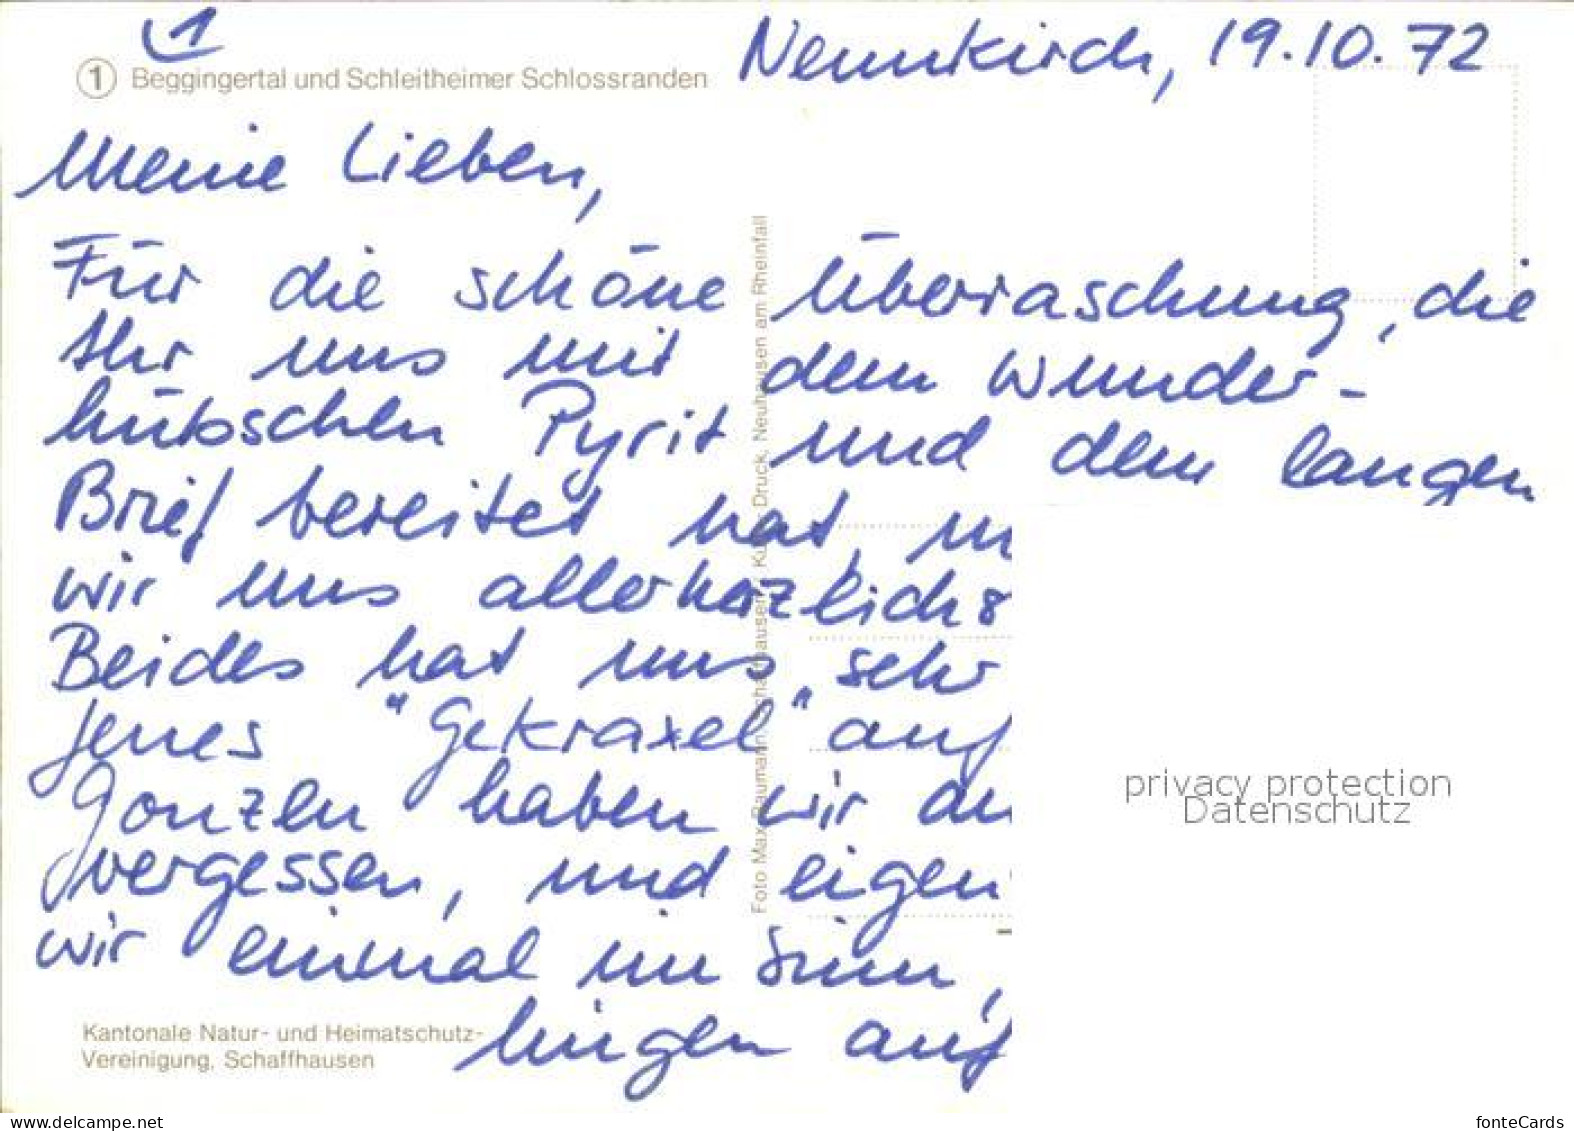 1
Neunkirch, 19.10.72
1 Beggingertal und Schleitheimer Schlossranden
Meine Lieben,
Für die schöne Überraschung, die
Ihr uns mit dem wunder-
hübschen Pyrit und dem langen
Brief bereitet hat, m
wir uns allerherzlichs
Beides hat uns sehr
jenes "Gekraxel" auf
Gonzen haben wir
vergessen, und eigen
wir einmal im Sinn,
auf
Kantonale Natur- und Heimatschutz-
Vereinigung, Schaffhausen
Foto Max Baumann, Schaffhausen Druck, Neuhausen am Rheinfall
privacy protection
Datenschutz
www.delcampe.net
fonteCards